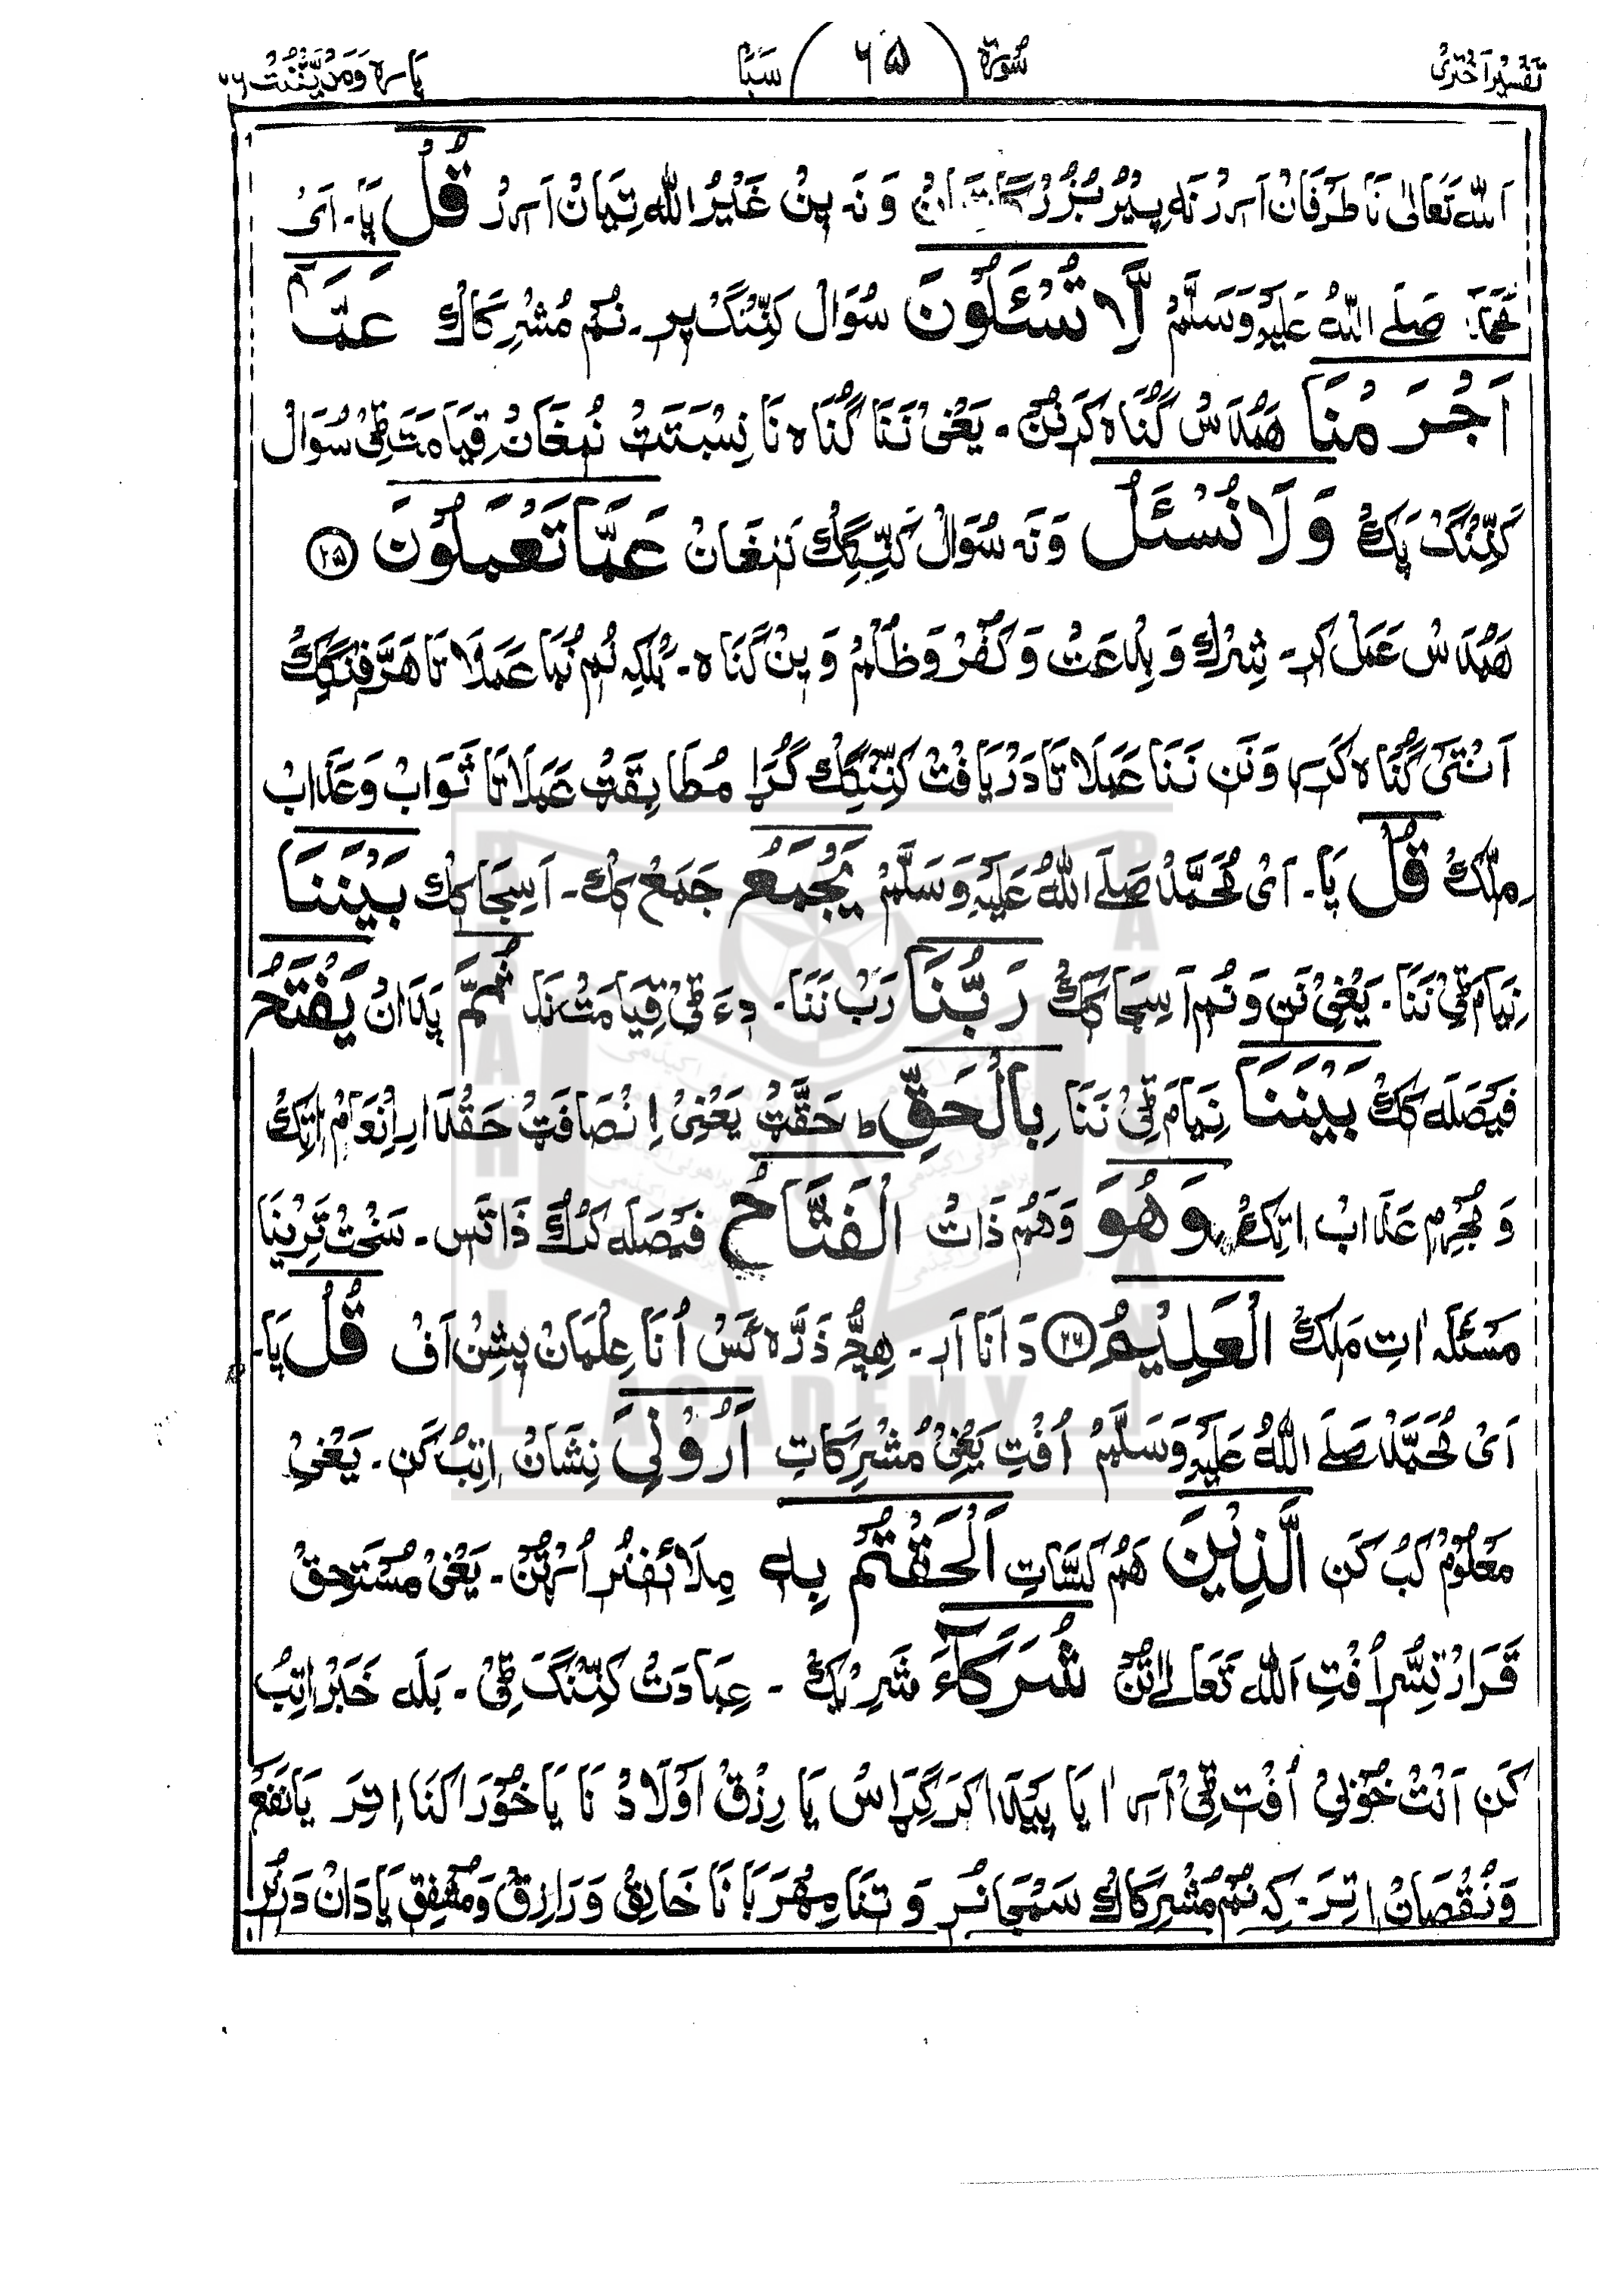 تفسیر اختری سورة ۶۵ سبا پاره ومن یقنت ۲۲
اَللّٰه تَعَالیٰ نَا طَرَفَان اَرر نَه پِیْر بُزُرْگَاتَان وَ نَه پِنْ غَیْرُ اللّٰه تِیَان اَرر قُلْ پَا۔ اَیْ
مُحَمَّد صَلَے اللّٰهُ عَلَیْهِ وَسَلَّمْ لَّا تُسْئَلُوْنَ سُوَال کَنِّنگ پر۔ نُم مُشْرِکَاک عَمَّآ
اَجْرَمْنَا هَنْدَس گُنَاه کَرنُن۔ یَعْنِیْ نَنَا گُنَاه نَا نِسْبَتَتْ نُمغَان قِیَامَتَ ٹِیْ سُوَالْ
کَنِّنگ پَک وَلَا نُسْئَلُ وَ نَه سُوَالْ کَنِّگِک نَنغَانْ عَمَّا تَعْمَلُوْنَ ۲۵
هَنْدَس عَمَل کر۔ شِرْک وَ بِدْعَتْ وَ کُفْرْ وَ ظُلْمْ وَ پِنْ گُنَاه۔ بَلْکِه نُم نُمَا عَمَلَاتَا هَرَّفِنگِک
اَنْتَیْ گُنَاه کَرے وَنَن نَنَا عَمَلَاتَا دَرْیَافْتْ کَنِّنگِک گُڑَا مُطَابِقَتْ عَمَلَاتَا ثَوَابْ وَعَذَابْ
مِلِّک قُلْ پَا۔ اَیْ مُحَمَّدْ صَلَے اللّٰهُ عَلَیْهِ وَسَلَّمْ یَجْمَعُ جَمَعْ کک۔ اَسِجَا کک بَیْنَنَا
نِیَام ٹِیْ نَنَا۔ یَعْنِیْ نَن وَ نُم اَسِجَا کک رَبُّنَا رَبْ نَنَا۔ دے ٹِیْ قِیَامَتْ نَا ثُمَّ پَدَانْ یَفْتَحُ
فَیْصَلَه کک بَیْنَنَا نِیَام ٹِیْ نَنَا بِالْحَقِّ ط حَقَّتْ یَعْنِیْ اِنْصَافَتْ حَقْدَار اِنْعَامْ اِتِک
وَ مُجْرِم عَذَابْ اِتِک وَهُوَ وَهُم ذَاتْ الْفَتَّاحُ فَیْصَلَه کرُک ذَاتَس۔ سَخْتْ تَرِیْنَا
مَسْئَلَه اٰتِ مَلِک الْعَلِیْمُ ۲۶ دَانَا اَر۔ هِچّ ذَرَّه کَس اُنَا عِلْمَان پِشِنْ اَفْ قُلْ پَا۔
اَیْ مُحَمَّدْ صَلَے اللّٰهُ عَلَیْهِ وَسَلَّمْ اُفْتِ یَعْنِیْ مُشْرِکَاتِ اَرُوْنِیَ نِشَانْ اِتِبُ کَن۔ یَعْنِیْ
مَعْلُوْم کَبُ کَن الَّذِیْنَ هَم کَسَّاتِ اَلْحَقْتُمْ بِهٖ مِلَائفنُر اُرتُن۔ یَعْنِیْ مُسْتَحِقْ
قَرَارْ تِسُّر اُفْتِ اَللّٰه تَعَالےٰ تُن شُرَکَآءَ شَرِیْک ۔ عِبَادَتْ کَنِّنگ ٹِیْ۔ بَلَه خَبَرْ اِتِبُ
کَن اَنْتْ خُوْبِیْ اُفْت ٹِیْ اَرے اٰیَا پَیْدَا کَرگِرَاس یَا رِزْقْ اَوْلَادْ نَا یَا خُوْرَاک نَا اِتِرَ یَا نَفَع
وَنُقْصَانْ اِتِرَ۔ کِه نُم مُشْرِکَاک سَمْجَانُر وَ تَنَا مِهْرَبَانَا خَالِقْ وَ رَازِقْ وَ مُشْفِقْ بَادَانْ
BRAHUI
ACADEMY
PAKISTAN